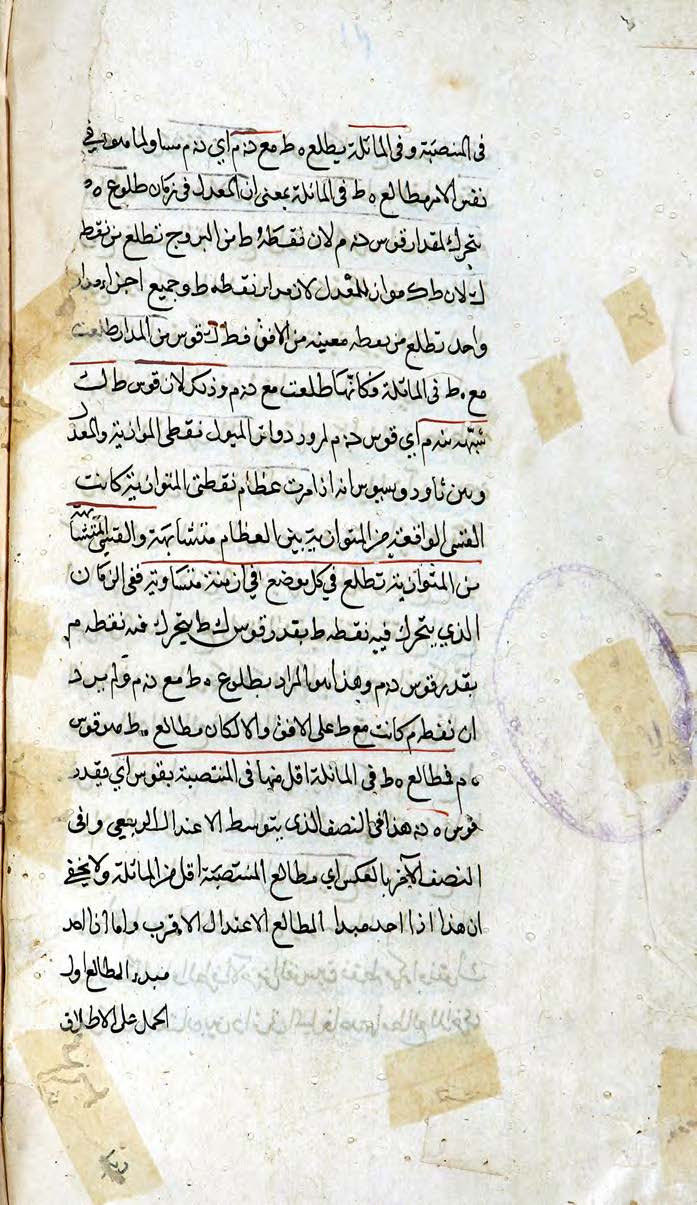 فى المنصبة وفى المائلة يطلع ه ط مع د م اي د م مساو لما هو في
نفس الامر مطالع ه ط فى المائلة بمعنى ان المعدل فى زمان طلوع ه ط
يتحرك لمقدار قوس د م لان نقطة ط من البروج تطلع من نقطة
ك لان ط ك مواز للمعدل لانه مدار نقطة ط وجميع اجزاء مدار
واحد تطلع من نقطه معينه من الافق فط ك قوس من المدار طلعت
مع ه ط فى المائلة فكانها طلعت مع د م وذلك لان قوس ط ك
شبيهة م اي قوس د م لمرور دوائر الميول بنقطى الموازية والمعدل
وبين ثاوذوسيوس انه اذا مرت عظام بقطبى المتوازية كانت
القسى الواقعة من المتوازية بين العظام متشابهة والقسى المتشابهة
من المتوازية تطلع في كل موضع فى ازمنة متساوية ففى الزمان
الذي يتحرك فيه نقطه ط بقدر قوس ك ط يتحرك فيه نقطه م
بقدر قوس د م وهذا هو المراد بطلوع ه ط مع د م ولم يرد
ان نقطه م كانت مع ط على الافق والا لكان مطالع ه ط هو قوس
ه م فمطالع ه ط فى المائلة اقل منها فى المنتصبة بقوس اي بقدر
قوس ه د هذا فى النصف الذى يتوسط الاعتدال الربيعي وفى
النصف الآخر بالعكس اي مطالع المنتصبة اقل من المائلة ولا يخفى
ان هذا اذا اخذ مبدا المطالع الاعتدال الاقرب واما اذا اخذ
مبدء المطالع اول
الحمل على الاطلاق